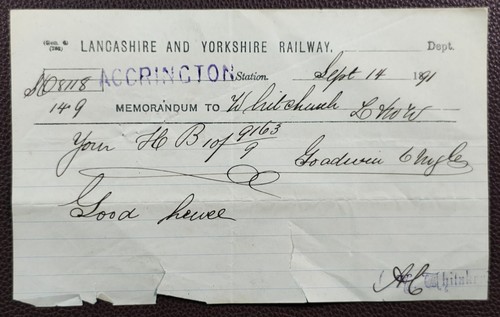 LANCASHIRE AND YORKSHIRE RAILWAY. Dept.
8118 ACCRINGTON Station. Sept 14 1891
149 MEMORANDUM TO Whitchurch L&NW
Your H B 10/ of 9163/9 Goodwin
Good hence
AC Whitake